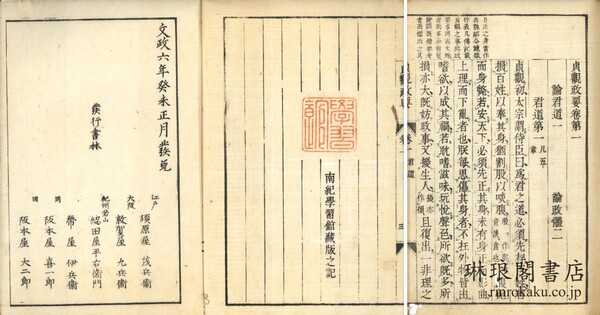 貞觀政要卷第一
論君道一 論政體二
君道第一 凡五章
貞觀初太宗謂侍臣曰爲君之道必須先存
損百姓以奉其身猶割股以啖腹
而身斃若安天下必須先正其身未有身正影曲
上理而下亂者也朕每思傷其身者不在外物皆由
嗜欲以成其禍若耽嗜滋味玩悅聲色所欲既多所
損亦大既妨政事又擾生人 且復出一非理之
貞觀政要 卷一 君道 三
南紀學習館藏版之記
文政六年癸未正月發兌
發行書林
江戶 須原屋 茂兵衞
大阪 敦賀屋 九兵衞
紀州若山 綛田屋平右衞門
同 帶屋 伊兵衞
同 阪本屋 喜一郎
阪本屋 大二郎
琳琅閣書店
rinrokaku.co.jp